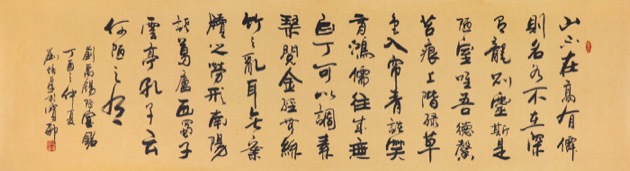 山不在高有僊
則名水不在深
有龍則靈斯是
陋室唯吾德馨
苔痕上階緑草
色入帘青談笑
有鴻儒往来無
白丁可以調素
琴閲金經無絲
竹之亂耳無案
牘之勞形南陽
諸葛廬西蜀子
雲亭孔子云
何陋之有
劉禹錫陋室銘
丁酉之仲夏